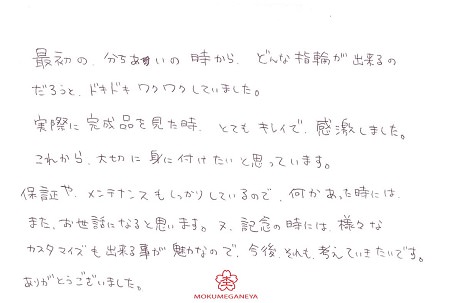 最初の、分ちあいの時から、どんな指輪が出来るの
だろうと、ドキドキワクワクしていました。
実際に完成品を見た時、とてもキレイで、感激しました。
これから、大切に身に付けたいと思っています。
保証や、メンテナンスもしっかりしているので、何かあった時には、
また、お世話になると思います。又、記念の時には、様々な
カスタマイズも出来る事が魅力なので、今後、それも、考えていきたいです。
ありがとうございました。
MOKUMEGANEYA